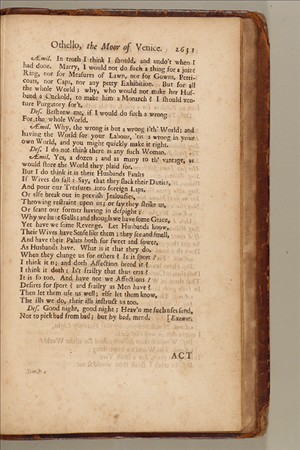 Othello, the Moor of Venice. 2631
Æmil. In truth I think I should, and undo't when I
had done. Marry, I would not do such a thing for a joint
Ring, nor for Measures of Lawn, nor for Gowns, Petti-
coats, nor Caps, nor any petty Exhibition. But for all
the whole World; why, who would not make her Hus-
band a Cuckold, to make him a Monarch? I should ven-
ture Purgatory for't.
Des. Beshrew me, if I would do such a wrong
For the whole World.
Æmil. Why, the wrong is but a wrong i'th' World; and
having the World for your Labour, 'tis a wrong in your
own World, and you might quickly make it right.
Des. I do not think there is any such Woman.
Æmil. Yes, a dozen; and as many to th' vantage, as
would store the World they plaid for.
But I do think it is their Husbands Faults
If Wives do fall: Say, that they slack their Duties,
And pour our Treasures into foreign Laps,
Or else break out in peevish Jealousies,
Throwing restraint upon us; or say they strike us,
Or scant our former having in despight;
Why we have Galls; and though we have some Grace,
Yet have we some Revenge. Let Husbands know,
Their Wives have Sense like them; they see and smell,
And have their Palats both for sweet and sower,
As Husbands have. What is it that they do,
When they change us for others? Is it sport?
I think it is; and doth Affection breed it?
I think it doth; Is't frailty that thus errs?
It is so too. And have not we Affections?
Desires for sport? and frailty as Men have?
Then let them use us well; else let them know,
The ills we do, their ills instruct us too.
Des. Good night, good night; Heav'n me such uses send,
Not to pick bad from bad; but by bad, mend. [Exeunt.
ACT